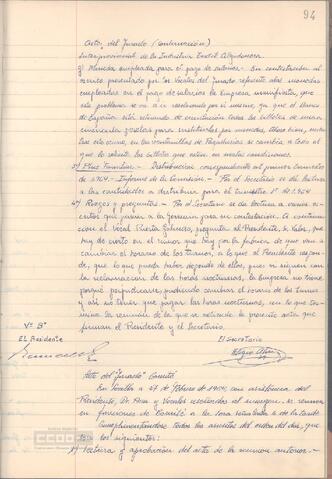 94
Acta del Jurado (Continuación)
Interprovincial de la Industria Textil Algodonera
moneda empleada para el pago de salarios.- En contestación al
escrito presentado por los Vocales del Jurado referente a las monedas
empleadas en el pago de salarios la Empresa manifiesta, que
este problema se va a ir resolviendo por sí mismo, ya que el Banco
de España está retirando de circulación todos los billetes de
cincuenta pesetas para sustituirlos por monedas,
en las ventanillas de Pagadurías se cambia a todo el
que lo solicite los billetes que estén en malas condiciones.
3º) Plus Familiar.- Distribución correspondiente al primer trimestre
de 1964.- Informe de la Comisión.- Por el Secretario se da lectura
a las cantidades a distribuir para el trimestre 1º de 1964
4º) Ruegos y preguntas.- Por el Secretario se da lectura a varios es-
critos que pasan a la Gerencia para su contestación. A continua-
ción el vocal Puerta pregunta al Presidente si sabe, que
hay de cierto en el rumor que hay por la fábrica de que van a
cambiar el horario de los turnos, a lo que el Presidente respon-
de, que lo que puede haber depende de ellos, pues si siguen con
la reclamación de las horas nocturnas, la empresa no tiene
porqué perjudicarse, pudiendo cambiar el horario de los turnos
y así no tener que pagar las horas nocturnas, con lo que ter-
mina la reunión de la que se extiende la presente acta que
firman el Presidente y el Secretario.
Vº Bº
El Presidente
El Secretario
Acta del "Jurado"
En Sevilla a 27 de Febrero de 1964, con asistencia del
Presidente, Sr. y Vocales reseñados al margen, se reunen
en funciones de Comité a la hora señalada de la tarde
cumplimentándose todos los asuntos del orden del día, que
son los siguientes:
1º) Lectura y aprobación del acta de la reunión anterior.-
CCOO